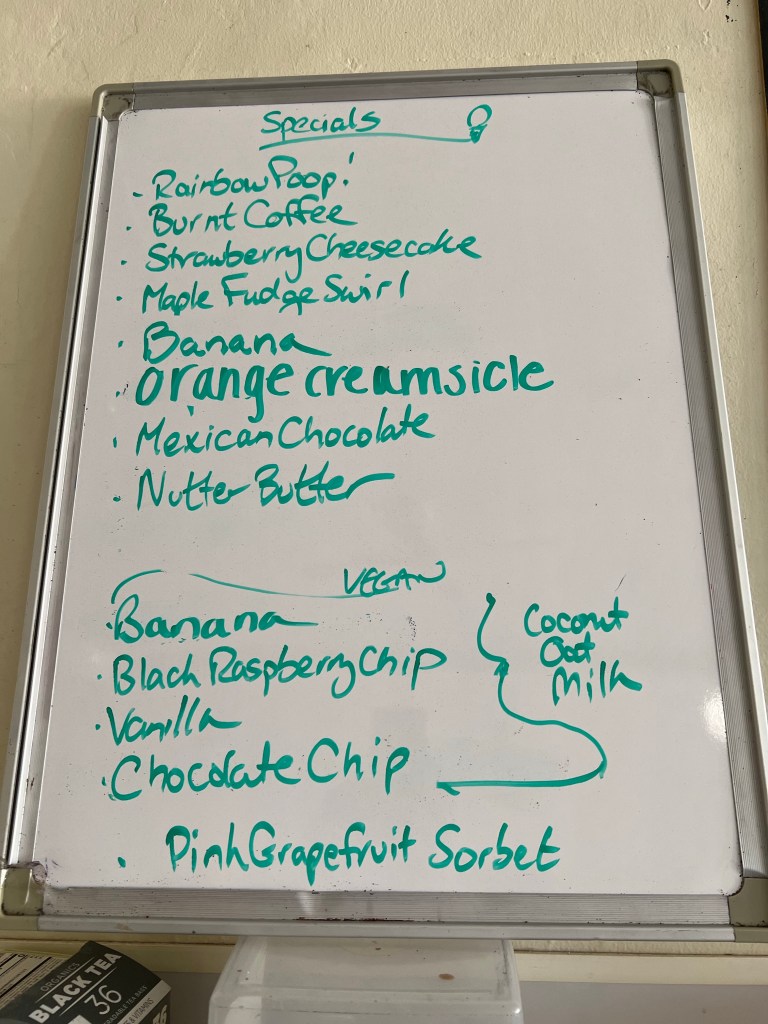 Specials
· Rainbow Poop!
· Burnt Coffee
· Strawberry Cheesecake
· Maple Fudge Swirl
· Banana
· orange creamsicle
· Mexican Chocolate
· Nutter Butter
VEGAN
· Banana
· Black Raspberry Chip
· Vanilla
· Chocolate Chip
Coconut
Oat
Milk
· Pink Grapefruit Sorbet
ORGANICS
BLACK TEA
36